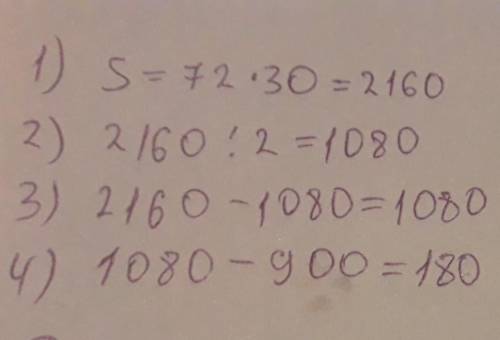 1) S = 72 · 30 = 2160
2) 2160 : 2 = 1080
3) 2160 - 1080 = 1080
4) 1080 - 900 = 180